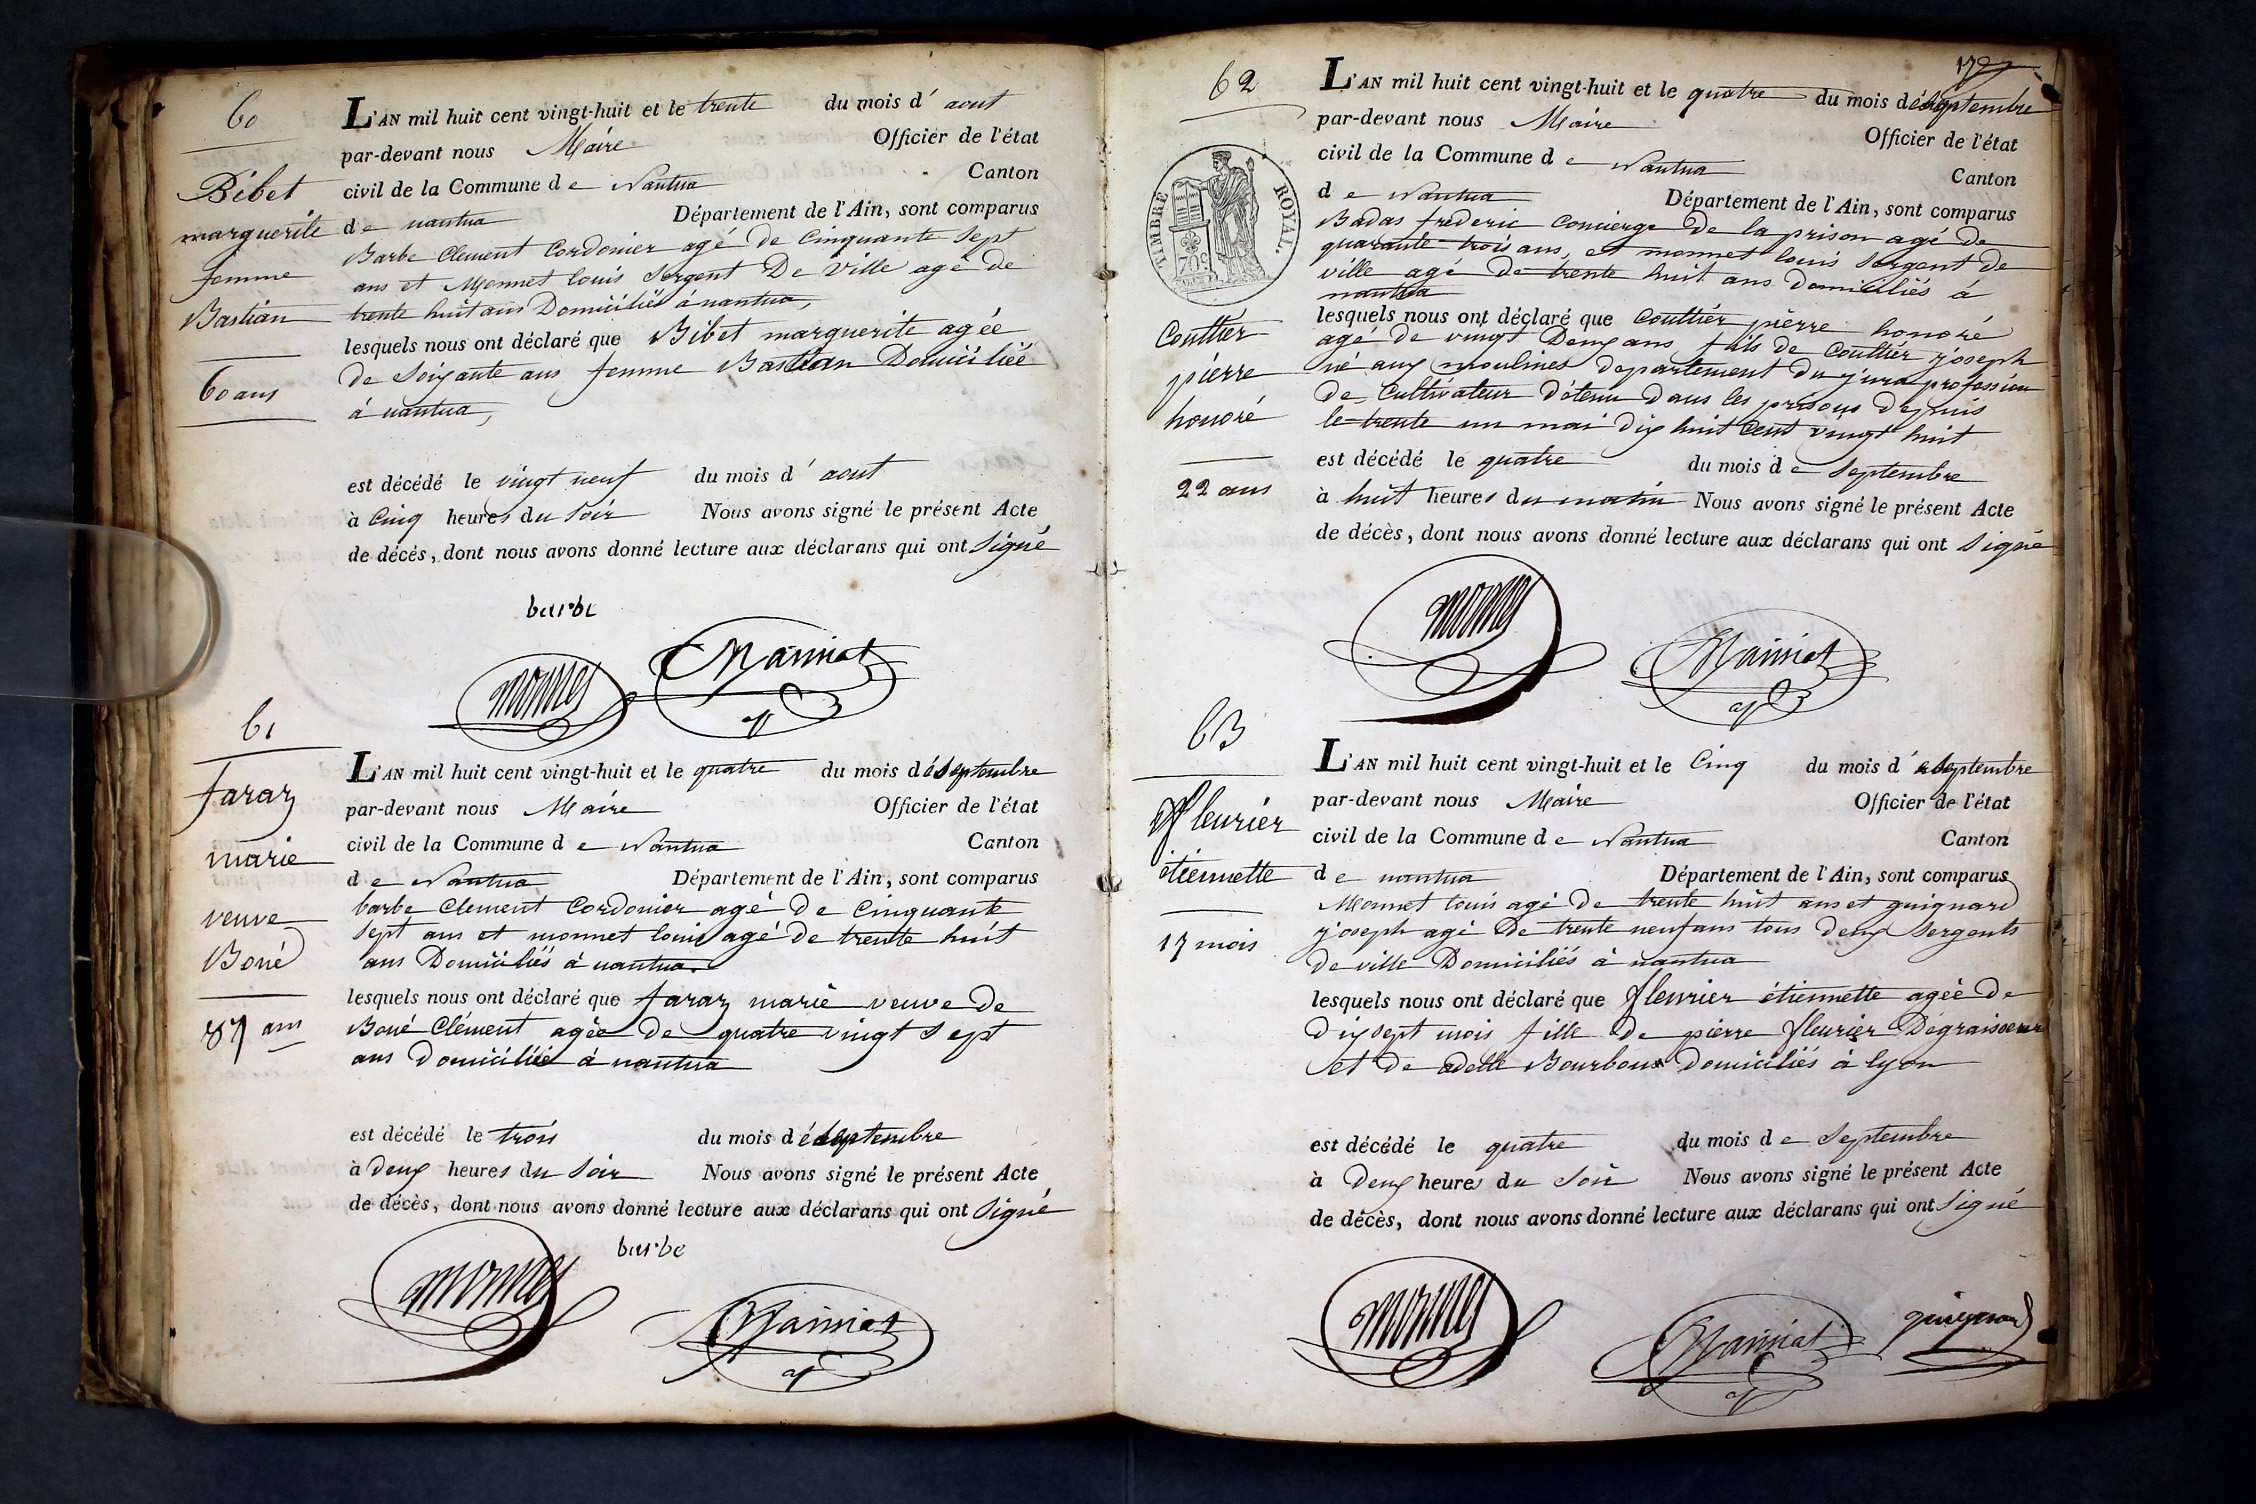 60
Bébet
marguerite
femme
Bastian
60 ans
L'AN mil huit cent vingt-huit et le trente du mois d' aout
par-devant nous Maire Officier de l'état
civil de la Commune d e Nantua Canton
d e nantua Département de l'Ain, sont comparus
Barbe Clement Cordonier agé de Cinquante Sept
ans et Monnet louis Sergent De Ville agé de
trente huit ans Domiciliés á nantua,
lesquels nous ont déclaré que Bébet marguerite agée
de Soixante ans femme Bastian Domiciliée
á nantua,
est décédé le vingt neuf du mois d' aout
à Cinq heures du Soir Nous avons signé le présent Acte
de décès, dont nous avons donné lecture aux déclarans qui ont Signé
barbe
monnet
61
faraz
marie
veuve
Boné
87 ans
L'AN mil huit cent vingt-huit et le quatre du mois de Septembre
par-devant nous Maire Officier de l'état
civil de la Commune d e Nantua Canton
d e Nantua Département de l'Ain, sont comparus
barbe Clement Cordonier agé De Cinquante
Sept ans et monnet louis agé de trente huit
ans Domiciliés à nantua.
lesquels nous ont déclaré que faraz marie veuve De
Boné Clément agée de quatre vingt Sept
ans Domiciliée á nantua
est décédé le trois du mois de Septembre
à Deux heures du Soir Nous avons signé le présent Acte
de décès, dont nous avons donné lecture aux déclarans qui ont Signé
barbe
monnet
62
TIMBRE ROYAL.
70c
Couttier
pierre
honoré
22 ans
L'AN mil huit cent vingt-huit et le quatre du mois de Septembre
par-devant nous Maire Officier de l'état
civil de la Commune d e Nantua Canton
d e Nantua Département de l'Ain, sont comparus
Badas frederic Concierge De la prison agé de
quarante trois ans, et monnet louis Sergent de
ville agé de trente huit ans Domiciliés à
nantua
lesquels nous ont déclaré que Couttier pierre honoré
agé de vingt Deux ans fils de Couttier joseph
né aux moulines departement du jura profession
de Cultivateur Détenu Dans les prisons Depuis
le trente un mai Dix huit Cent vingt huit
est décédé le quatre du mois d e Septembre
à huit heures du matin Nous avons signé le présent Acte
de décès, dont nous avons donné lecture aux déclarans qui ont Signé
monnet
63
fleurier
étiennette
17 mois
L'AN mil huit cent vingt-huit et le Cinq du mois d' e Septembre
par-devant nous Maire Officier de l'état
civil de la Commune d e Nantua Canton
d e nantua Département de l'Ain, sont comparus
Monnet louis agé de trente huit ans et guignard
joseph agé De trente neuf ans tous deux Sergents
de ville Domiciliés à nantua
lesquels nous ont déclaré que fleurier étiennette agée De
Dix sept mois fille De pierre fleurier Dégraisseur
et De adelle Bourbon Domiciliés à lyon
est décédé le quatre du mois d e Septembre
à Deux heures du Soir Nous avons signé le présent Acte
de décès, dont nous avons donné lecture aux déclarans qui ont Signé
monnet
guignard